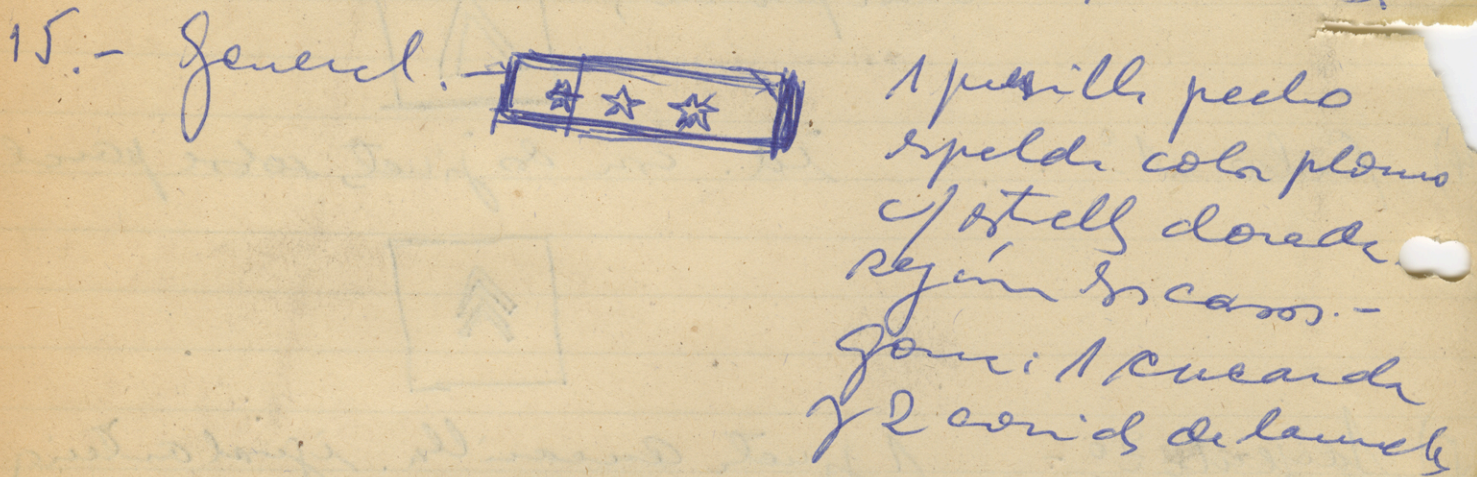 15.- General.-
1 presilla pecho
espalda color plomo
c/ estrella dorada
según los casos.-
Gorra: 1 escarda
y 2 de laureles